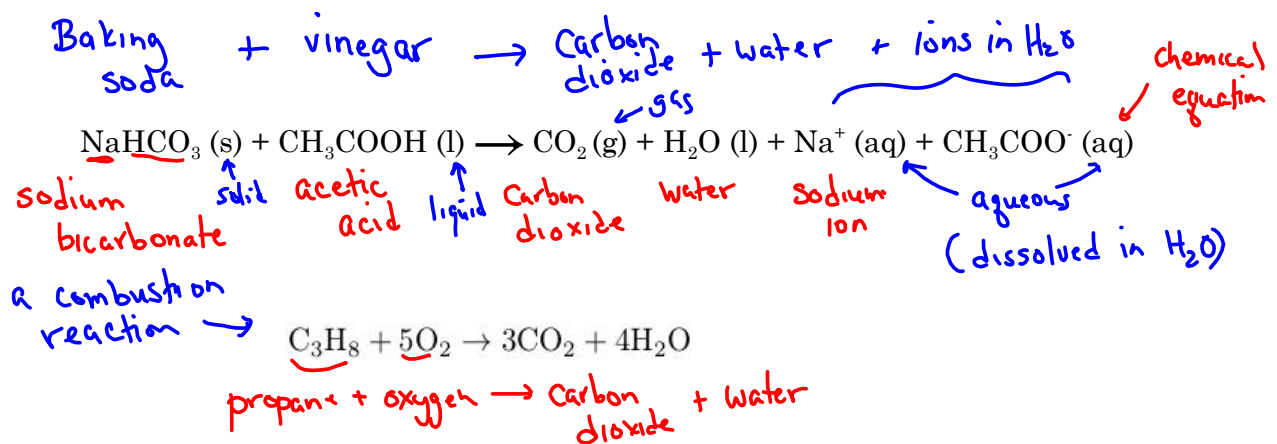 Baking soda + vinegar → Carbon dioxide + water + ions in H₂O
gas
chemical equation
NaHCO₃ (s) + CH₃COOH (l) → CO₂ (g) + H₂O (l) + Na⁺ (aq) + CH₃COO⁻ (aq)
sodium bicarbonate
solid
acetic acid
liquid
Carbon dioxide
water
sodium ion
aqueous
(dissolved in H₂O)
a combustion
reaction →
C₃H₈ + 5O₂ → 3CO₂ + 4H₂O
propane + oxygen → Carbon dioxide + water